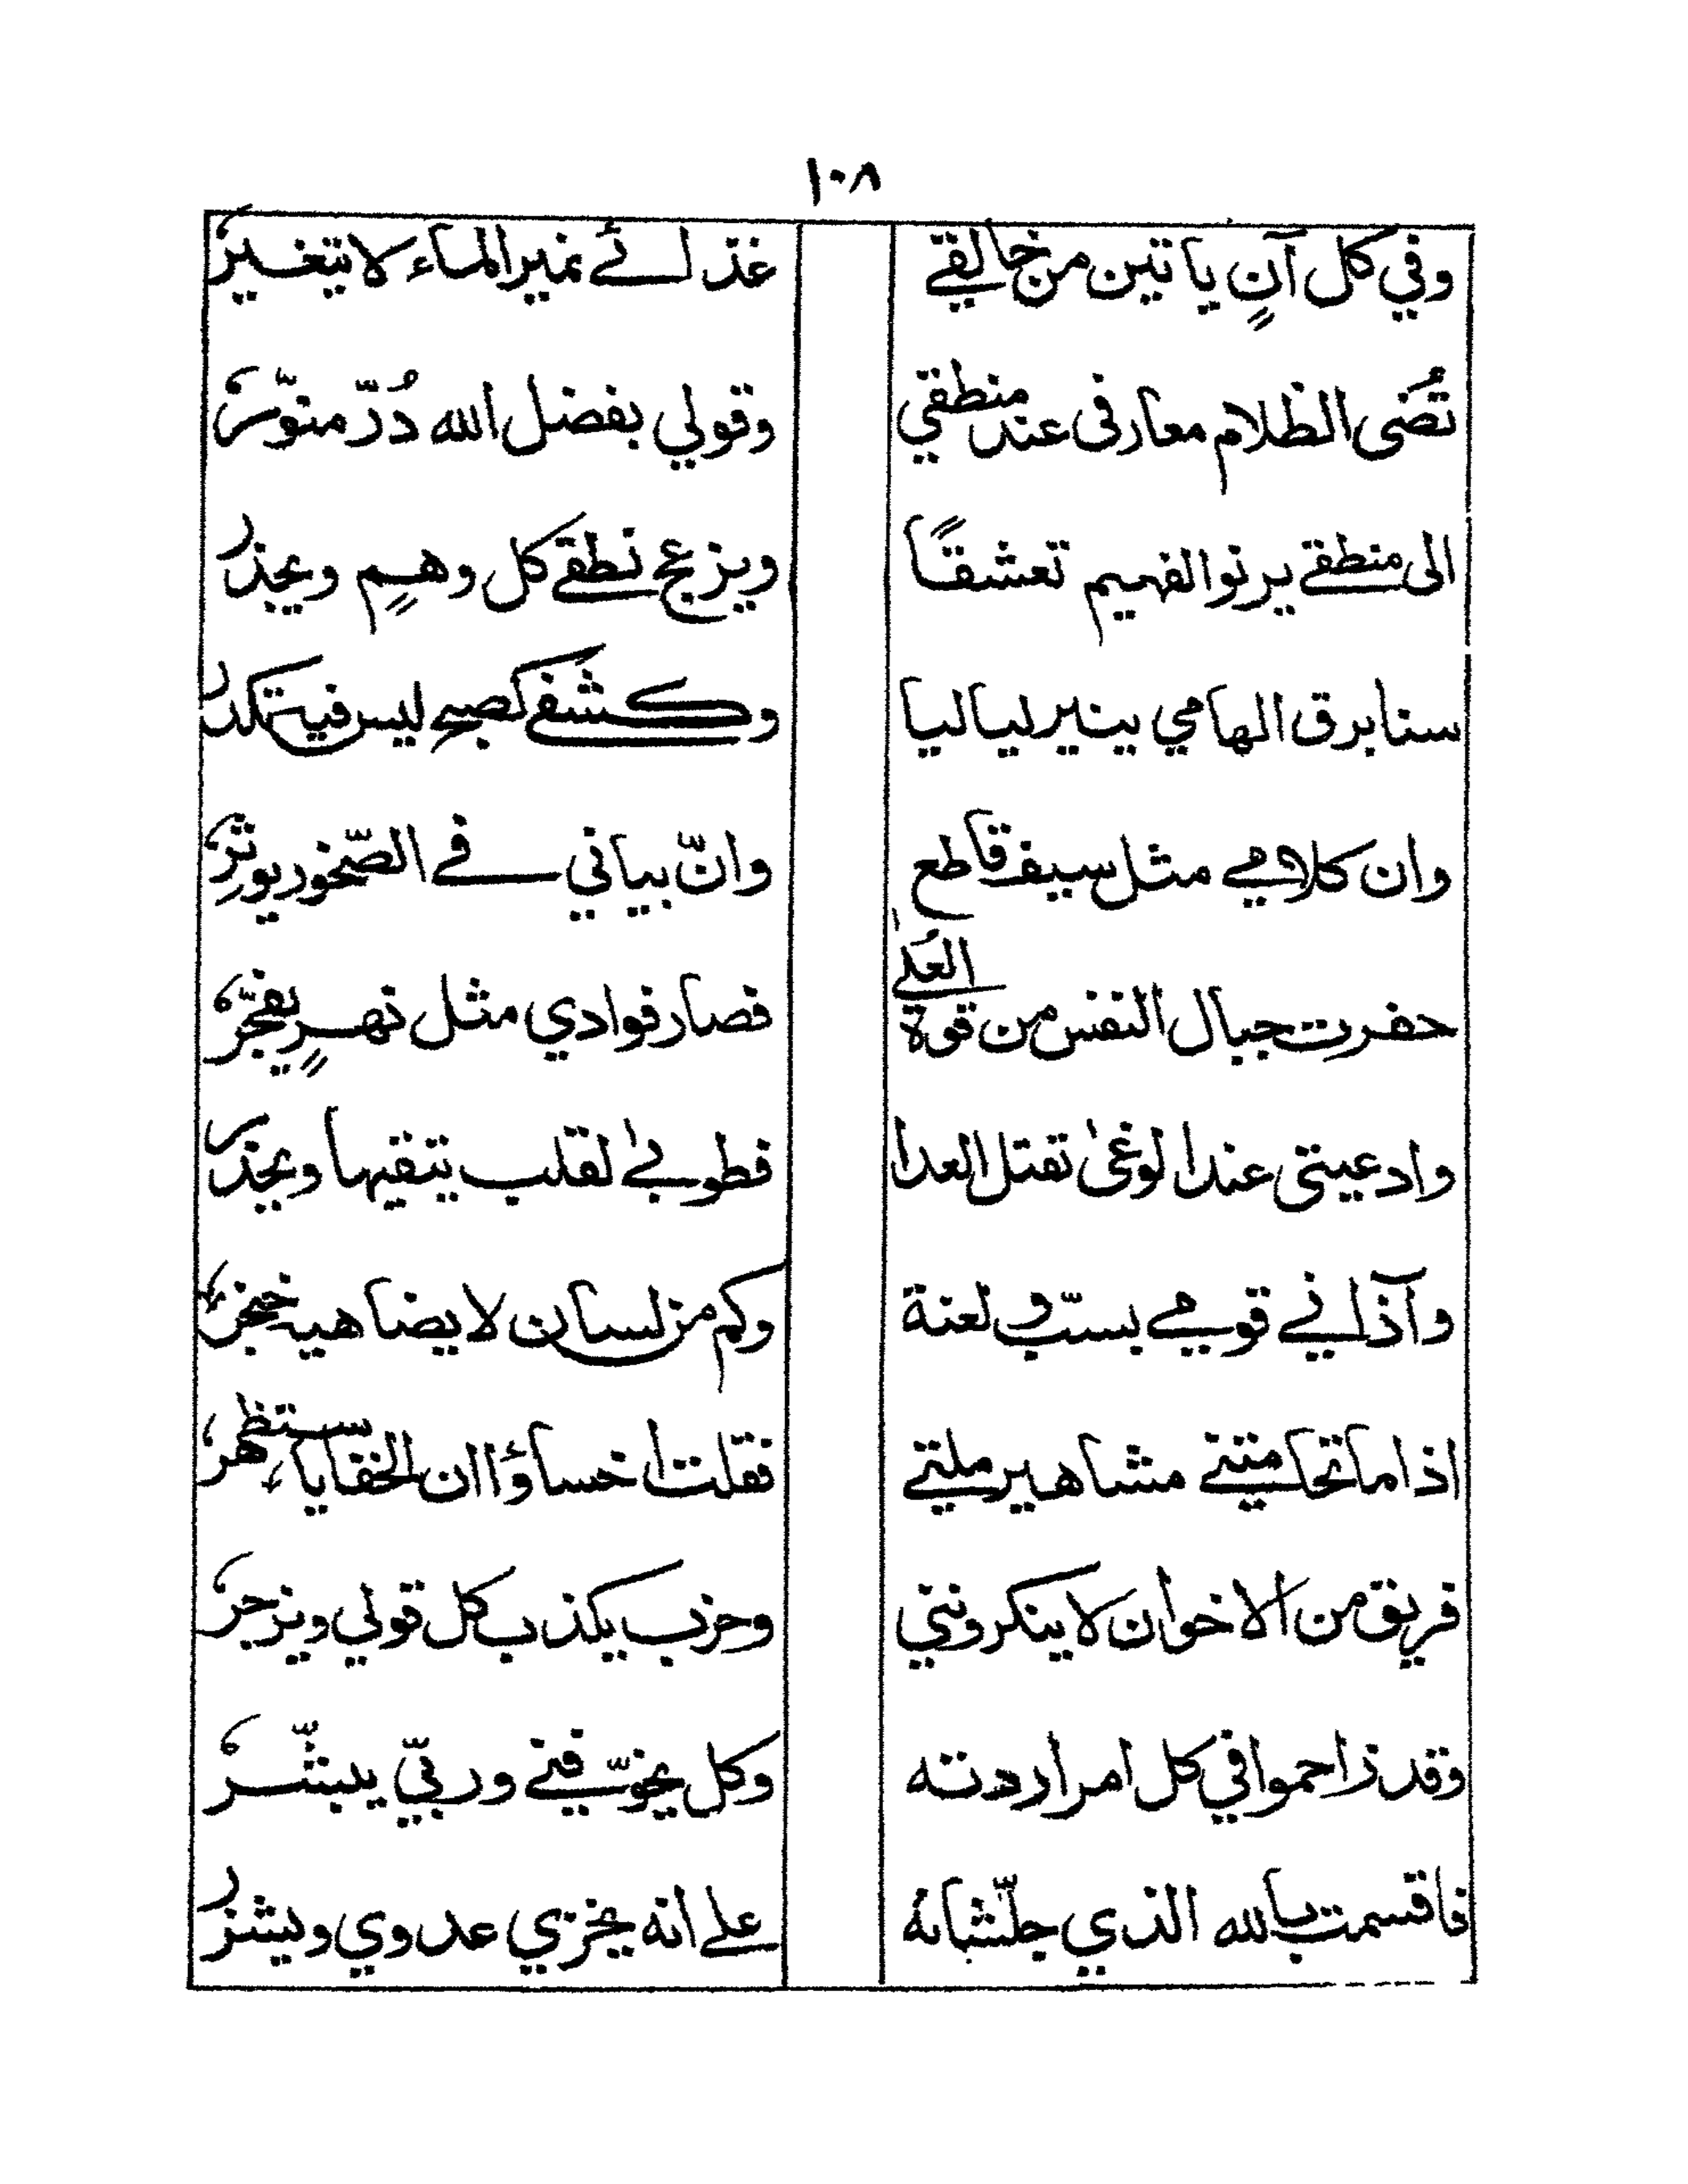 ١٠٨
وفي كل آنٍ ياتين من خالقي غذائے نمیر الماء لا یتغیرُ
تُضی الظلام معارفی عند منطقي وقولي بفضل الله دُرّ منوّرُ
الی منطقے یرنوا الفہیم تعشقًا ویزعج نطقے کل وهمٍ ویجذر
سنا برق الهامي ینیر لیالیا وکشفے کصبح لیس فیه تکدر
وان کلامے مثل سیف قاطع وانّ بیاني فے الصّخور یوثِّرُ
حفرت جبال النفس من قوة العُلیٰ فصار فوادي مثل نهرٍ یفجّرُ
وادعیتی عند الوغیٰ تقتل العدا فطوبیٰ لقلب یتقیها ویحذر
وآذانے قومے بسبّ و لعنة وکم من لسان لا یضاهیه خنجرُ
اذا ما تحامتنے مشاهیر ملتے فقلت اخساؤا ان الخفایا ستظهرُ
فریق من الاخوان لا ینکروننی وحزب یکذب کل قولي ویزجرُ
وقد زاحموا في کل امر اردته وکل یخوّفنے وربّي یبشّرُ
فاقسمت بالله الذي جلّ شانهُ علے انه یخزي عدوي ویشزر